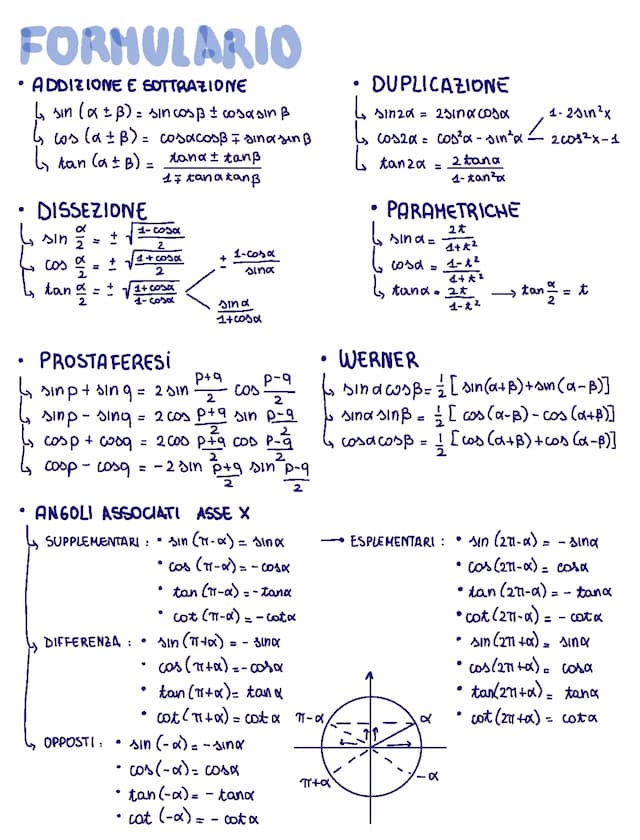 FORMULARIO
• ADDIZIONE E SOTTRAZIONE
↳ sin (α ± β) = sin cosβ ± cosα sin β
↳ cos (α ± β) = cosα cosβ ∓ sinα sin β
↳ tan (α ± β) = (tanα ± tanβ) / (1 ∓ tanα tanβ)
• DUPLICAZIONE
↳ sin2α = 2sinα cosα
↳ cos2α = cos²α - sin²α
1 - 2sin²x
2cos²x - 1
↳ tan2α = 2tanα / (1 - tan²α)
• DISSEZIONE
↳ sin α/2 = ± √((1 - cosα)/2)
↳ cos α/2 = ± √((1 + cosα)/2)
↳ tan α/2 = ± √((1 + cosα)/(1 - cosα))
± (1 - cosα)/sinα
sinα/(1 + cosα)
• PARAMETRICHE
↳ sinα = 2t/(1 + t²)
↳ cosα = (1 - t²)/(1 + t²)
↳ tanα = 2t/(1 - t²) → tan α/2 = t
• PROSTAFERESI
↳ sinp + sinq = 2 sin (p+q)/2 cos (p-q)/2
↳ sinp - sinq = 2 cos (p+q)/2 sin (p-q)/2
↳ cosp + cosq = 2cos (p+q)/2 cos (p-q)/2
↳ cosp - cosq = -2 sin (p+q)/2 sin (p-q)/2
• WERNER
↳ sinα cosβ = 1/2 [sin(α+β) + sin(α-β)]
↳ sinα sinβ = 1/2 [cos(α-β) - cos(α+β)]
↳ cosα cosβ = 1/2 [cos(α+β) + cos(α-β)]
• ANGOLI ASSOCIATI ASSE X
↳ SUPPLEMENTARI : • sin (π-α) = sinα
• cos (π-α) = - cosα
• tan (π-α) = - tanα
• cot (π-α) = - cotα
↳ DIFFERENZA : • sin (π+α) = - sinα
• cos (π+α) = - cosα
• tan (π+α) = tanα
• cot (π+α) = cotα
↳ OPPOSTI : • sin (-α) = - sinα
• cos (-α) = cosα
• tan (-α) = - tanα
• cot (-α) = - cotα
→ ESPLEMENTARI : • sin (2π-α) = - sinα
• cos (2π-α) = cosα
• tan (2π-α) = - tanα
• cot (2π-α) = - cotα
• sin (2π+α) = sinα
• cos (2π+α) = cosα
• tan (2π+α) = tanα
• cot (2π+α) = cotα
π-α
α
π+α
-α